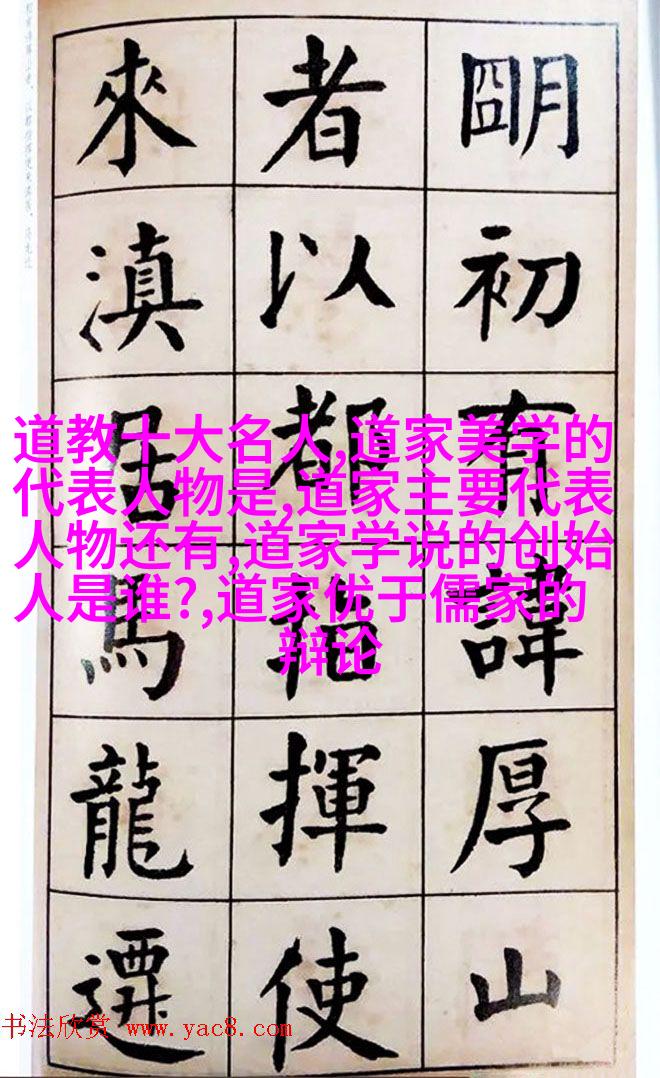 朙初有諱厚山
者以都指揮使
來滇居馬龍遷
道教十大名人,道家美学的
代表人物是,道家主要代表
人物还有,道家学说的创始
人是谁?,道家优于儒家的
辩论
书法欣赏 www.yac8.com